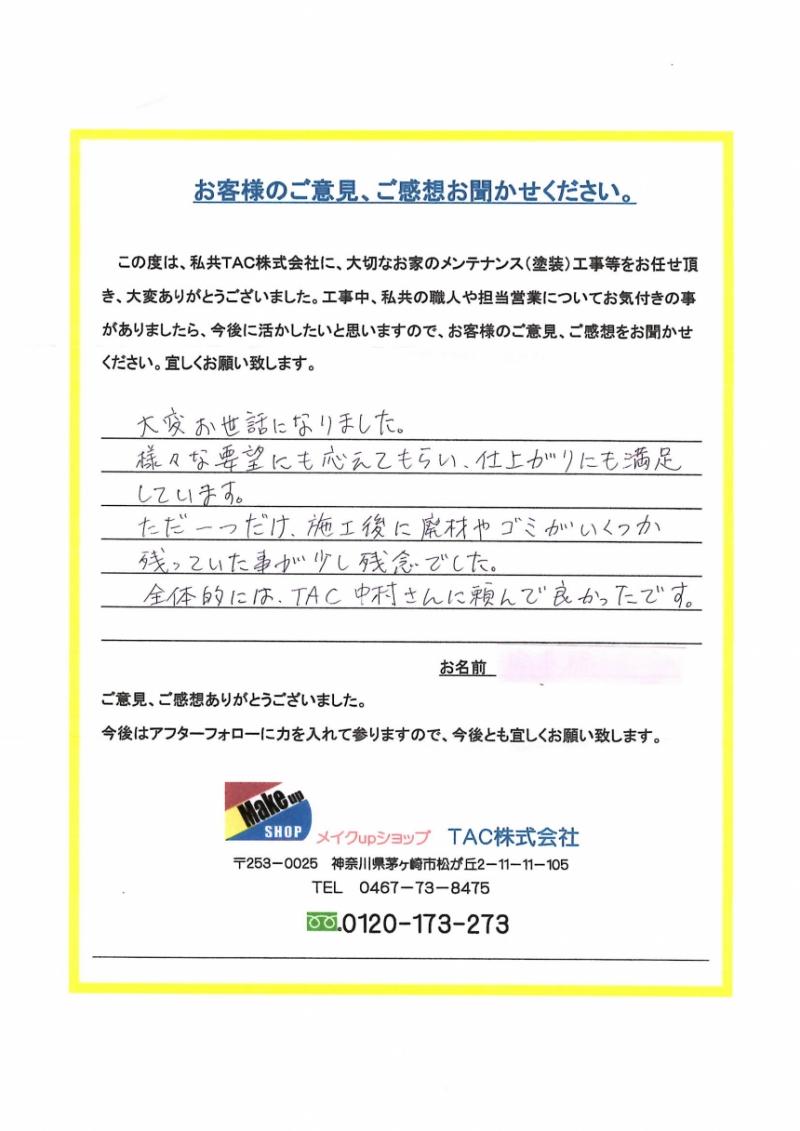 お客様のご意見、ご感想お聞かせください。
この度は、私共TAC株式会社に、大切なお家のメンテナンス（塗装）工事等をお任せ頂
き、大変ありがとうございました。工事中、私共の職人や担当営業についてお気付きの事
がありましたら、今後に活かしたいと思いますので、お客様のご意見、ご感想をお聞かせ
ください。宜しくお願い致します。
大変お世話になりました。
様々な要望にも応えてもらい、仕上がりにも満足
しています。
ただ一つだけ、施工後に廃材やゴミがいくつか
残っていた事が少し残念でした。
全体的には、TAC中村さんに頼んで良かったです。
お名前
ご意見、ご感想ありがとうございました。
今後はアフターフォローに力を入れて参りますので、今後とも宜しくお願い致します。
Make up
SHOP
メイクupショップ TAC株式会社
〒253－0025 神奈川県茅ヶ崎市松が丘2－11－11－105
TEL 0467－73－8475
0120-173-273